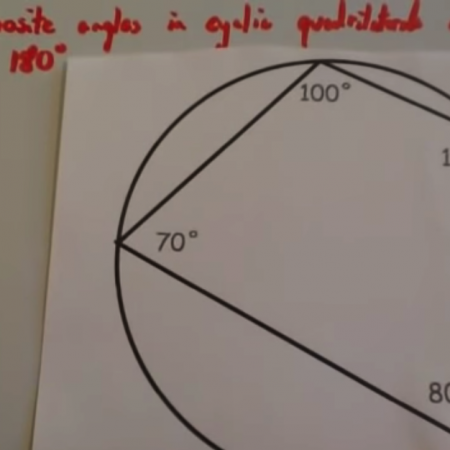 angles in cyclic quadrilaterals
180°
100°
70°